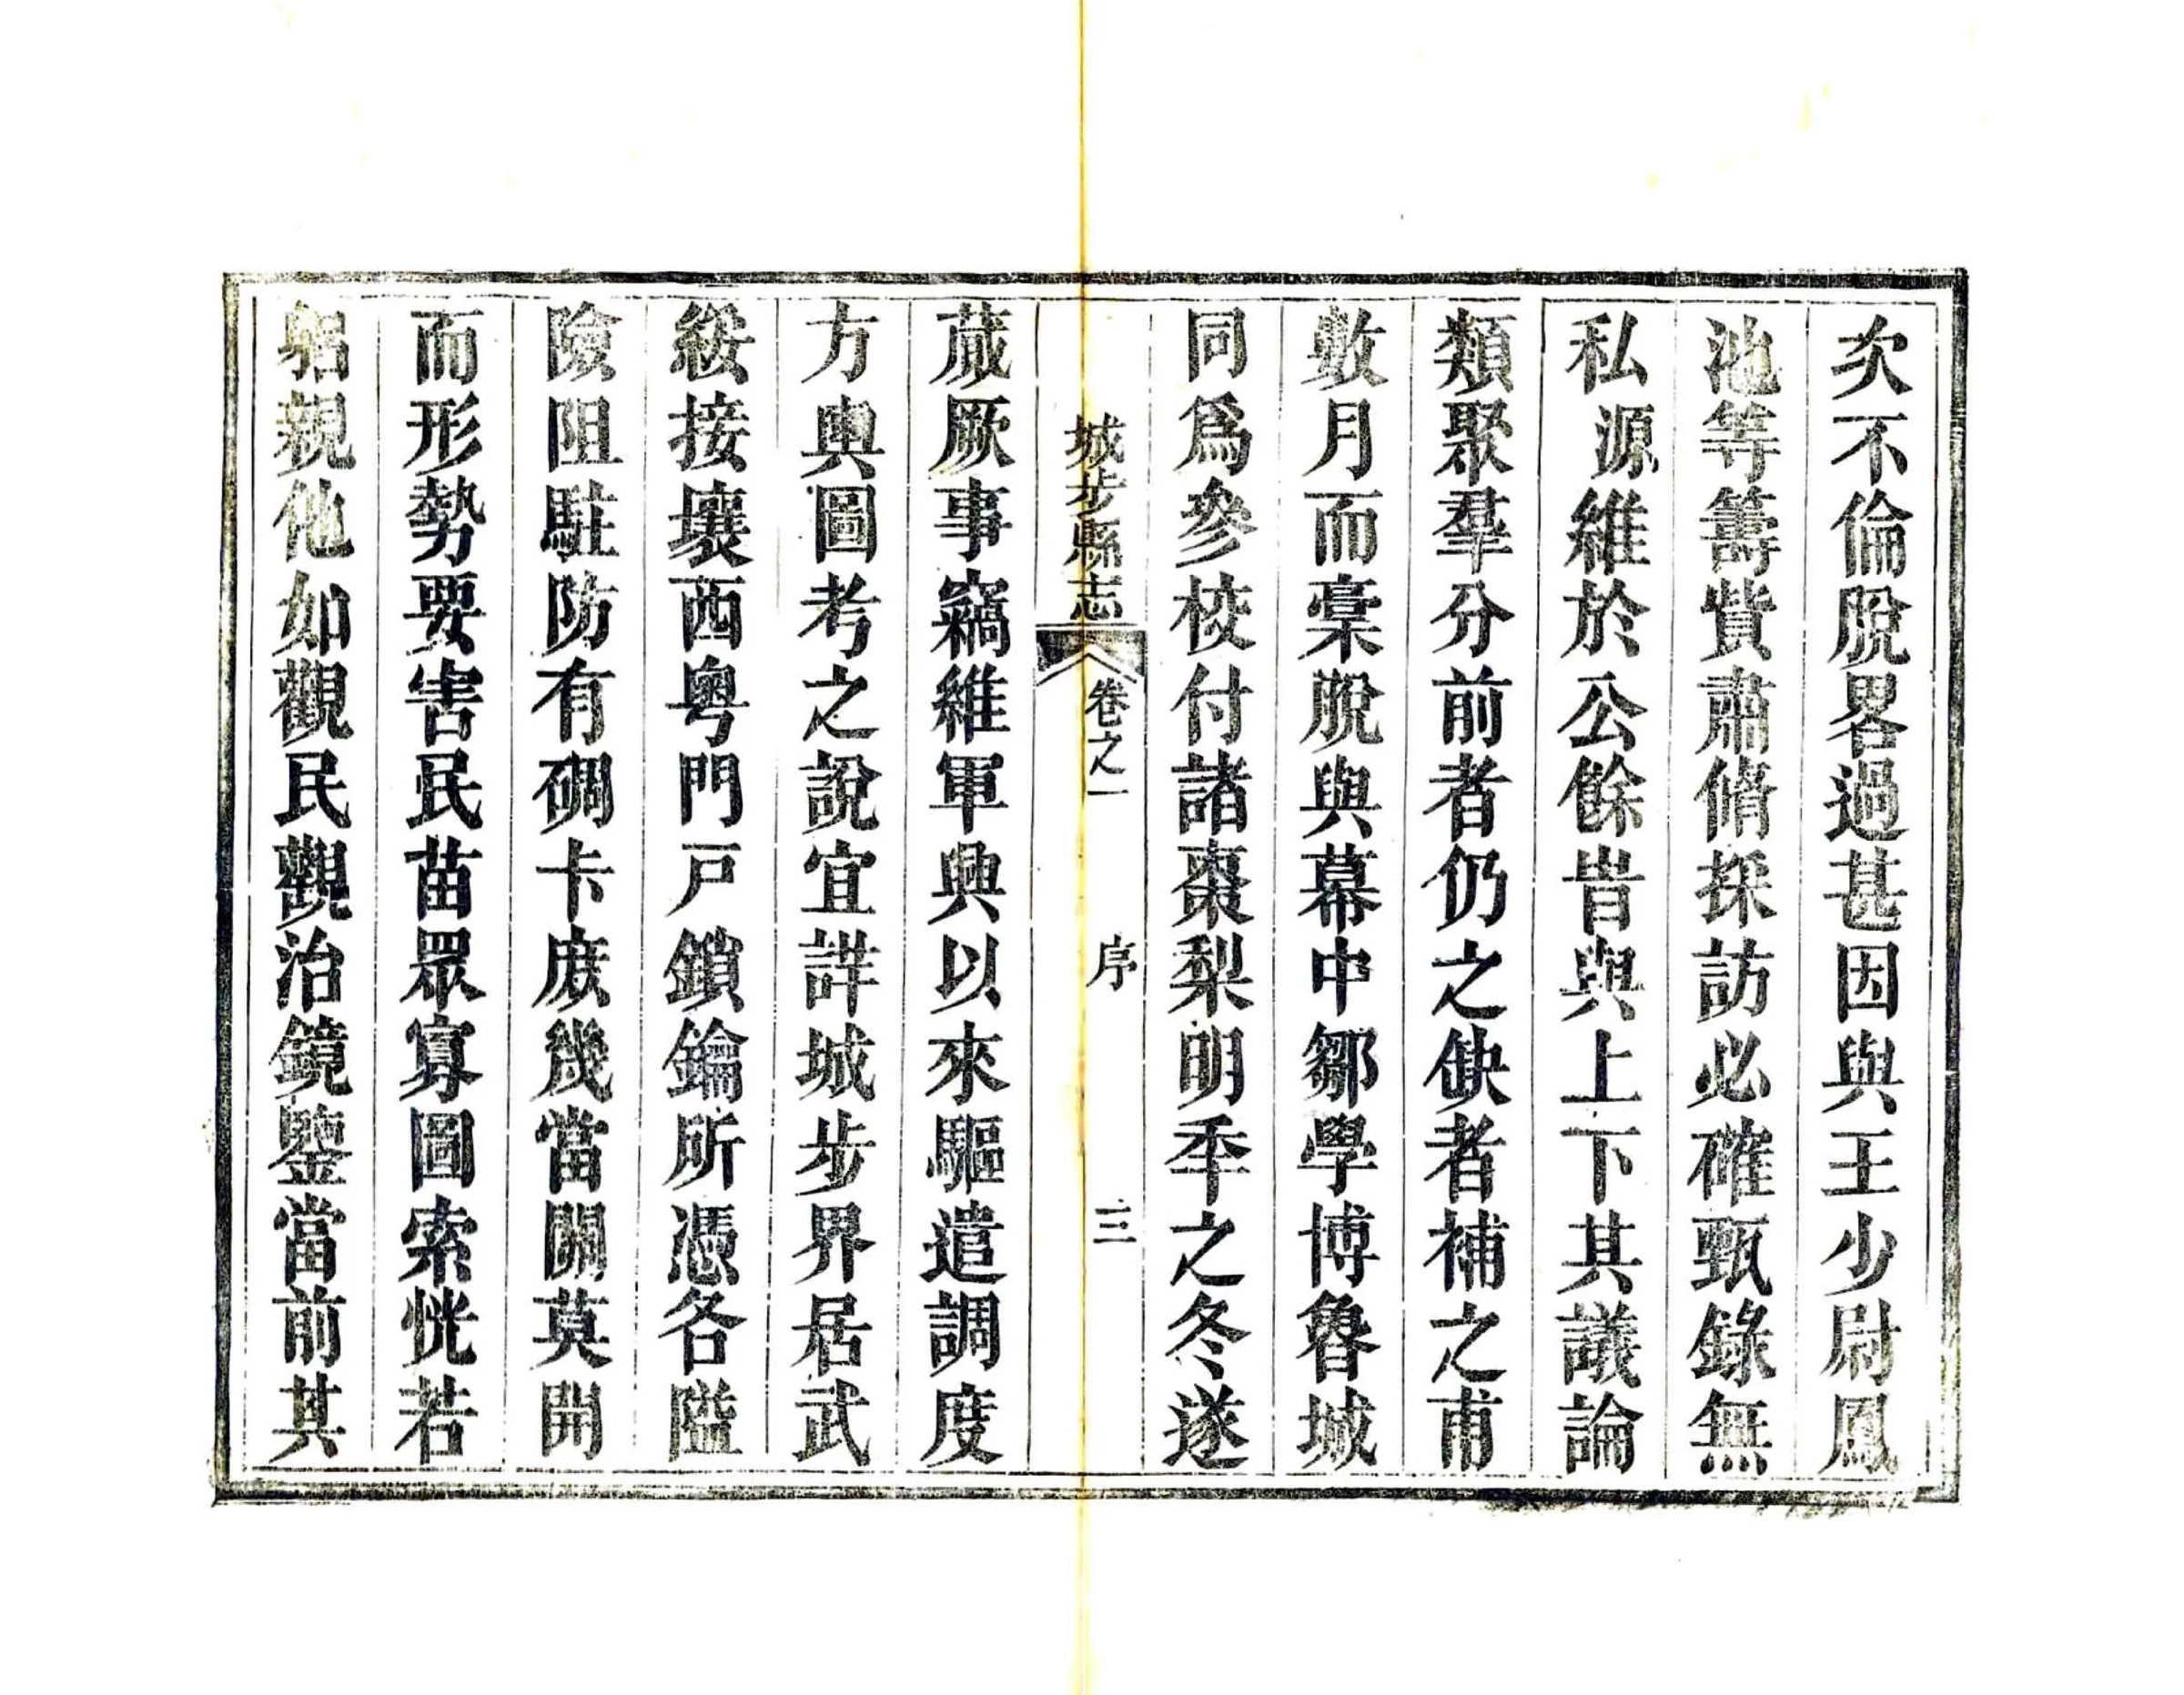 次不倫脫畧過甚因與王少尉鳳
池等籌貲肅脩採訪必確甄錄無
私源維於公餘岿與上下其議論
類聚羣分前者仍之缺者補之甫
數月而稾脫與幕中鄒學博魯城
同爲參校付諸棗梨明秊之冬遂
城步縣志 卷之一 序 三
蕆厥事竊維軍興以來驅遣調度
方輿圖考之說宜詳城步界居武
綏接壤西粵門戸鎖鑰所憑各隘
險阻駐防有碉卡庶幾當關莫開
而形勢要害民苗眾寡圖索恍若
躬親他如觀民觀治鏡鑒當前其